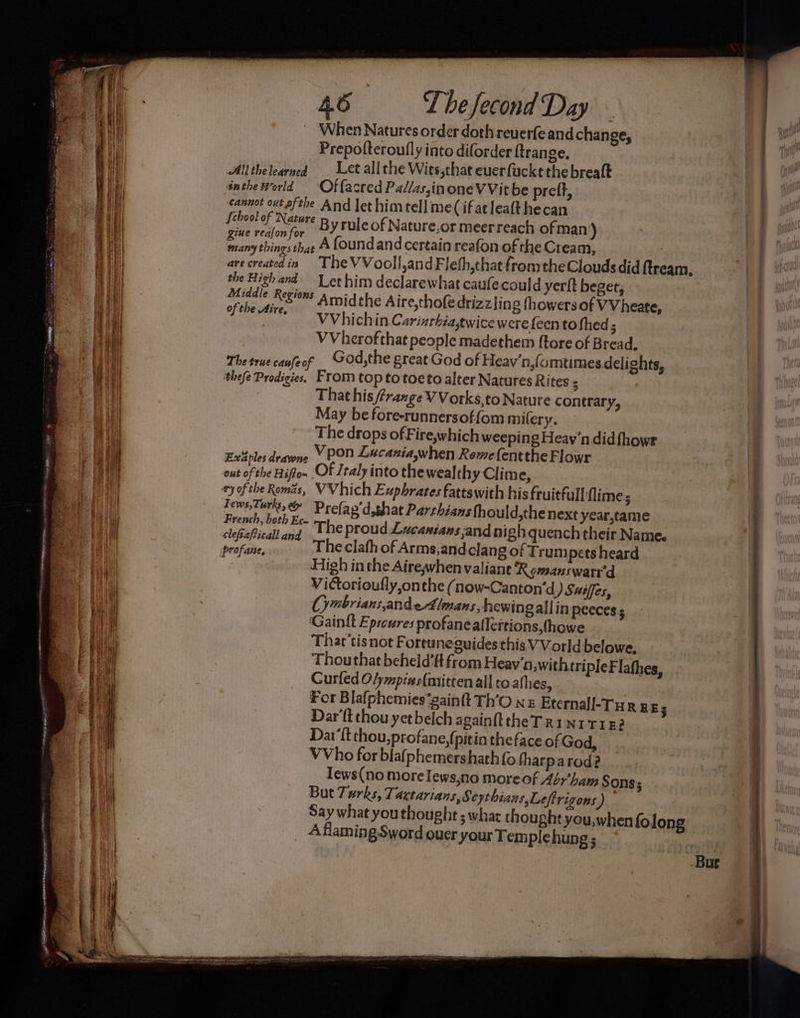 46 The second Day
When Natures order doth reuerse and change,
Preposterously into disorder strange.
All the learned
in the World
cannot out of the
school of Nature
giue reason for
many things that
are created in
the High and
Middle Regions
of the Aire.
Let all the Wits, that euer suckt the breast
Of sacred Pallas, in one VVit be prest,
And let him tell me (if at least he can
By rule of Nature, or meer reach of man)
A sound and certain reason of the Cream,
The VVooll, and Flesh, that from the Clouds did stream.
Let him declare what cause could yerst beget,
Amid the Aire, those drizzling showers of VVheate,
VVhich in Carinthia, twice were seen to shed;
VVherof that people made them store of Bread.
The true cause of
these Prodigies.
God, the great God of Heav'n, somtimes delights,
From top to toe to alter Natures Rites;
That his strange VVorks, to Nature contrary,
May be fore-runners of som misery.
The drops of Fire, which weeping Heav'n did showr
Exãples drawne
out of the Histo-
ry of the Romãs,
Iews, Turks, &
French, both Ec-
clesiasticall and
profane.
Vpon Lucania, when Rome sent the Flowr
Of Italy into the wealthy Clime,
VVhich Euphrates fatts with his fruitfull slime;
Presag'd, that Parthians should, the next year, tame
The proud Lucanians, and nigh quench their Name.
The clash of Arms, and clang of Trumpets heard
High in the Aire, when valiant Romans warr'd
Victoriously, on the (now-Canton'd) Suisses,
Cymbrians, and Almans, hewing all in peeces;
'Gainst Epicures profane assertions, showe
That 'tis not Fortune guides this VVorld belowe.
Thou that beheld'st from Heav'n, with triple Flashes,
Cursed Olympius smitten all to ashes,
For Blasphemies 'gainst Th'ONE Eternall-THREE;
Dar'st thou yet belch against the TRINITIE?
Dar'st thou, profane, spit in the face of God,
VVho for blasphemers hath so sharp a rod?
Iews (no more Iews, no more of Abr'ham Sons;
But Turks, Tartarians, Scythians, Lestrigons)
Say what you thought; what thought you, when so long
A flaming Sword ouer your Temple hung;
But